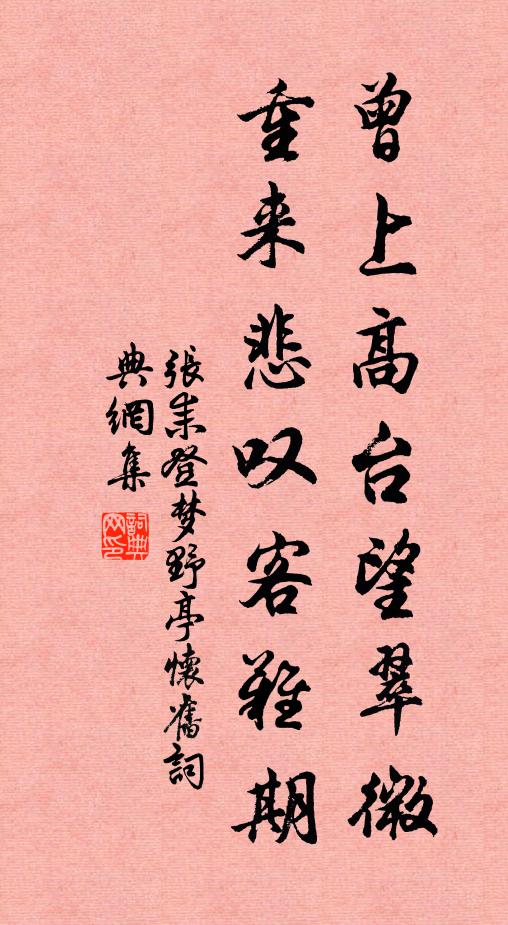 曾上高台望翠微
重来悲叹客难期
張耒登梦野亭懷舊詞
典網集
詞典网印